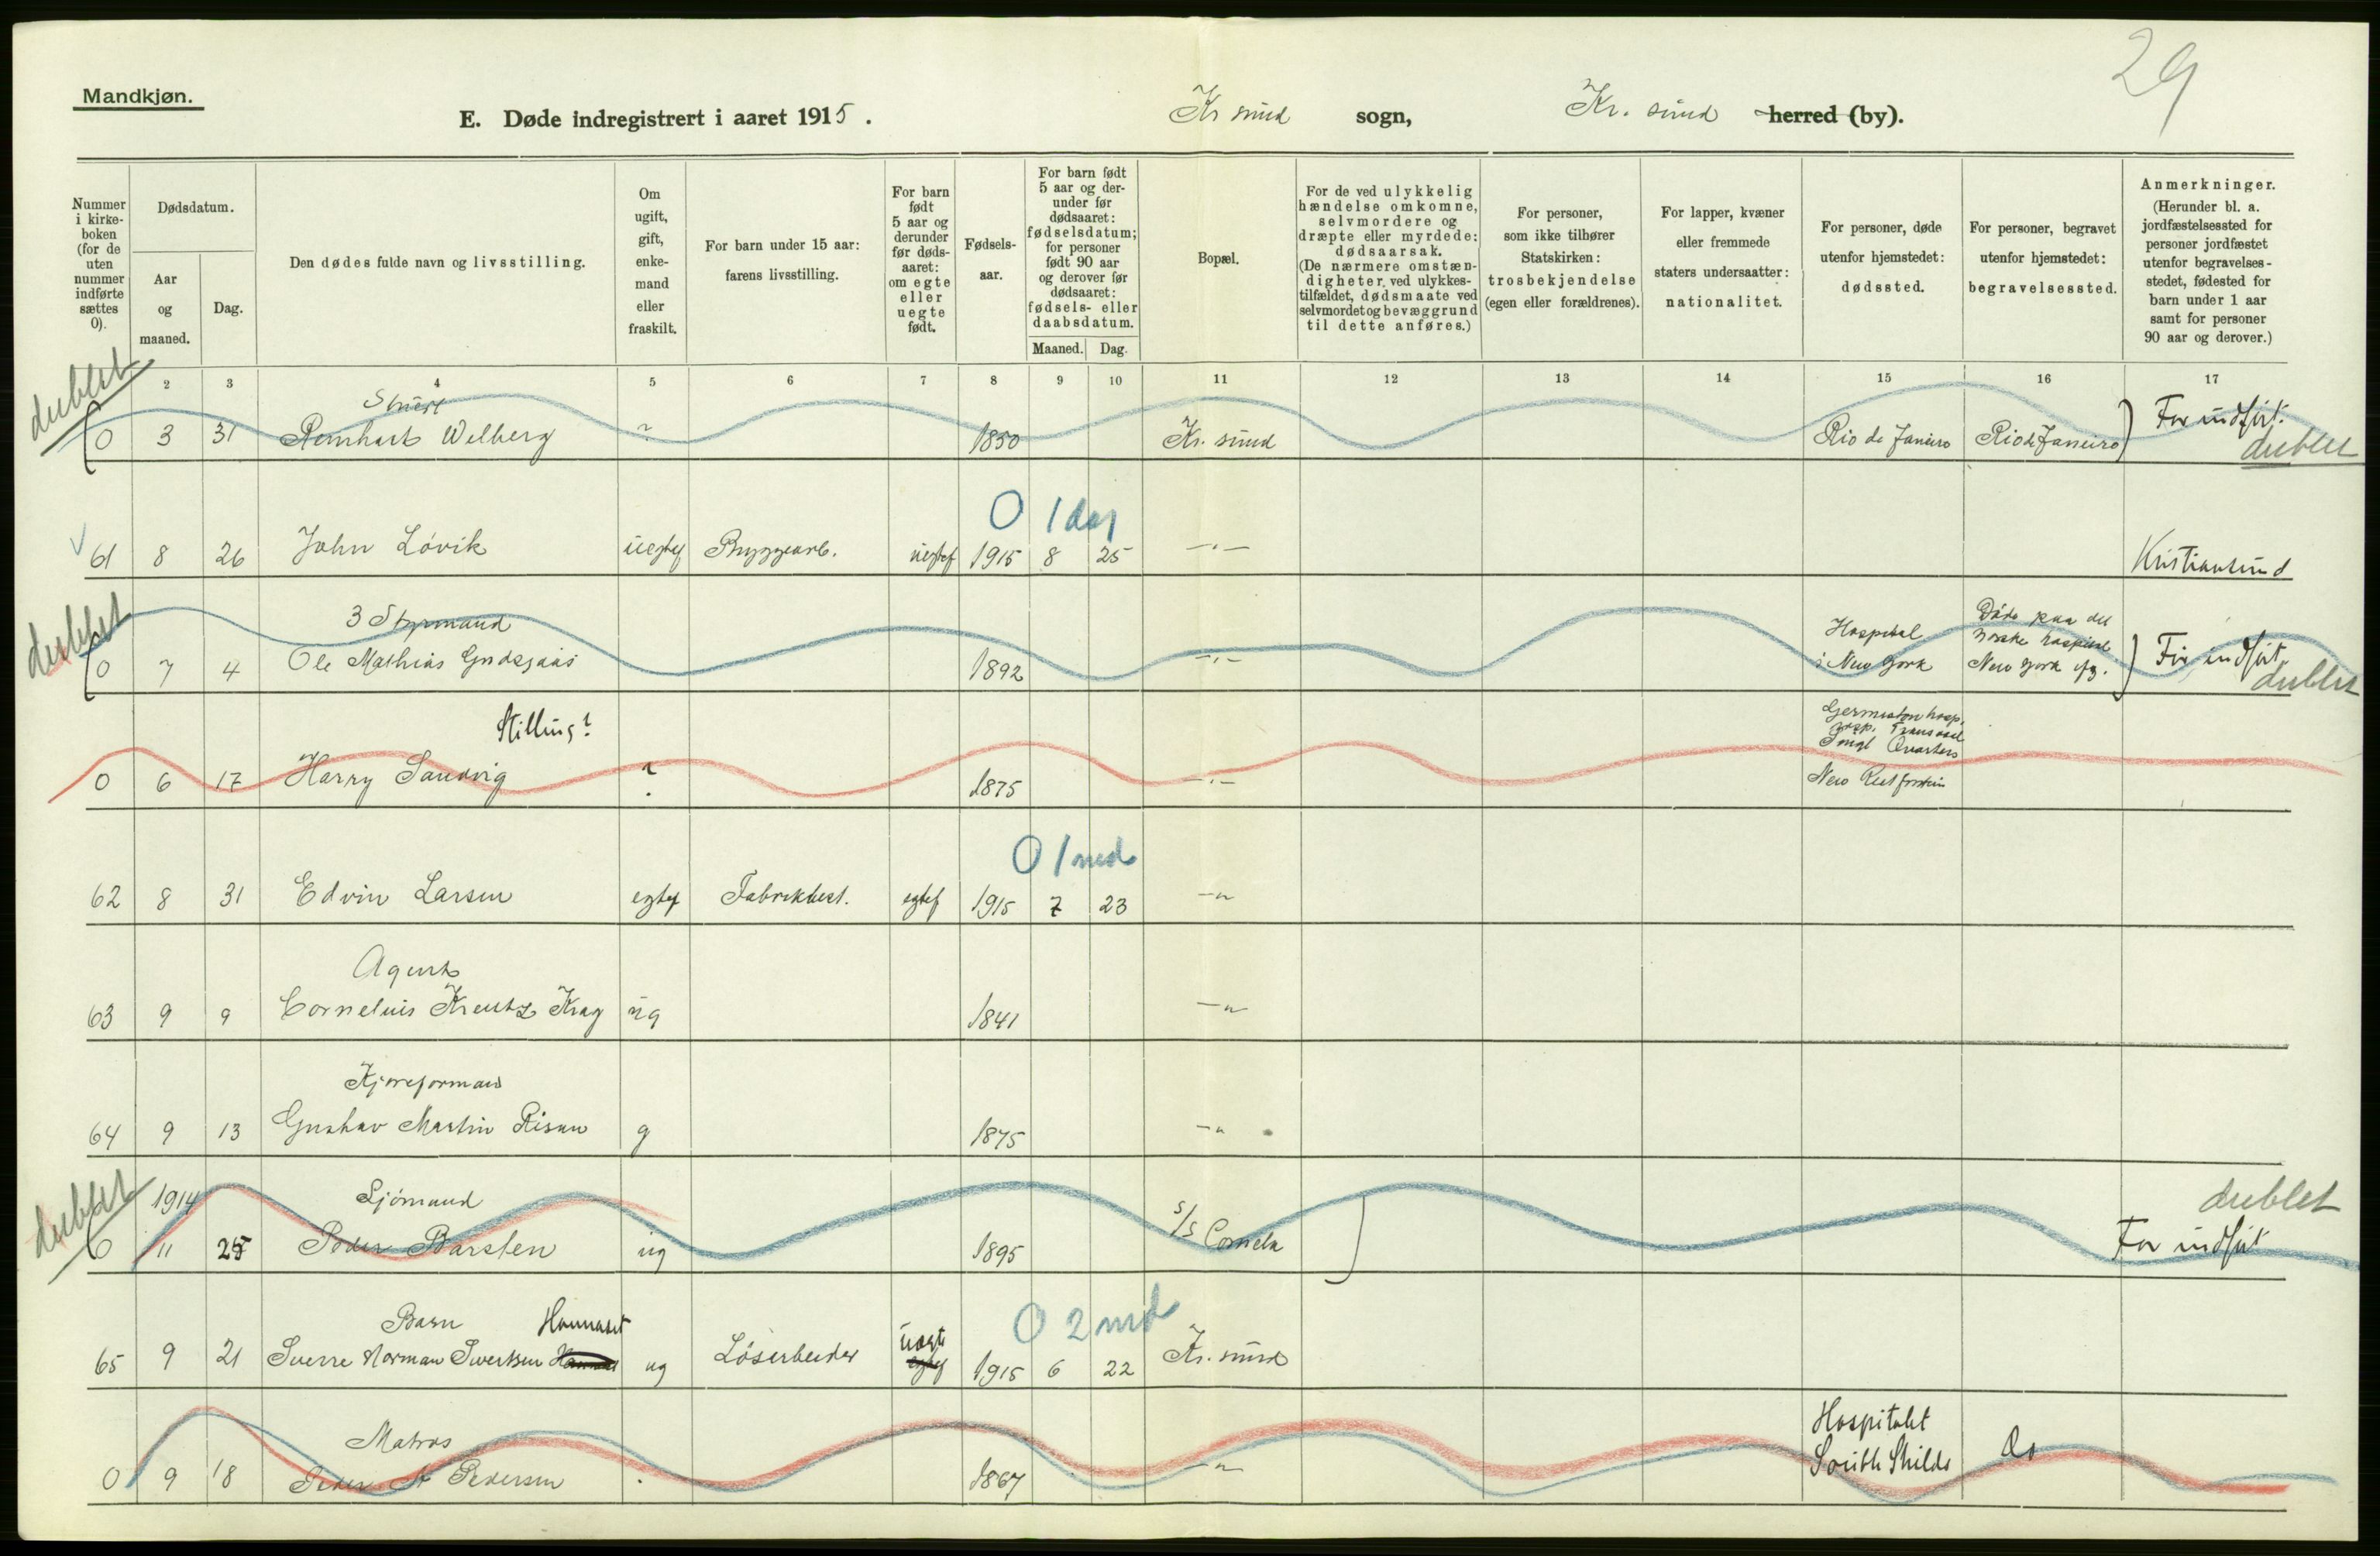 29
Mandkjøn.
E. Døde indregistrert i aaret 1915. Kr sund sogn, Kr. sund herred (by).
Nummer i kirke- boken (for de uten nummer indførte sættes 0).
Dødsdatum.
Aar og maaned.
Dag.
Den dødes fulde navn og livsstilling.
Om ugift, gift, enke- mand eller fraskilt.
For barn under 15 aar: farens livsstilling.
For barn født 5 aar og derunder før døds- aaret: om egte eller uegte født.
Fødsels- aar.
For barn født 5 aar og der- under før dødsaaret: fødselsdatum; for personer født 90 aar og derover før dødsaaret: fødsels- eller daabsdatum.
Maaned. Dag.
Bopæl.
For de ved ulykkelig hændelse omkomne, selvmordere og dræpte eller myrdede: dødsaarsak. (De nærmere omstæn- digheter ved ulykkes- tilfældet, dødsmaate ved selvmordet og bevæggrund til dette anføres.)
For personer, som ikke tilhører Statskirken: trosbekjendelse (egen eller forældrenes).
For lapper, kvæner eller fremmede staters undersaatter: nationalitet.
For personer, døde utenfor hjemstedet: dødssted.
For personer, begravet utenfor hjemstedet: begravelsessted.
Anmerkninger. (Herunder bl. a. jordfæstelsessted for personer jordfæstet utenfor begravelses- stedet, fødested for barn under 1 aar samt for personer 90 aar og derover.)
2 3 4 5 6 7 8 9 10 11 12 13 14 15 16 17
dublet
Stuert
0 3 31 Reinhart Welberg ? 1850 Kr. sund Rio de Janeiro Rio de Janeiro) For indført.
dublet
0 1 dag
61 8 26 John Løvik uegtef Bryggearb. uegtef 1915 8 25 —"— Kristiansund
dublet
3 Styrmand
0 7 4 Ole Mathias 1892 —"— Hospital i New York Døde paa det norske hospital New York ) Før indført
dublet
Stilling?
0 6 17 Harry Sandvig ? 1875 —"— Germiston hosp. hosp. Transvaal Quarters New
0 1 md
62 8 31 Edvin Larsen egtef Fabrikbest. egtef 1915 7 23 —"
Agent
63 9 9 Cornelius Kreutz Krag ug 1841 —"
Kjøreformand
64 9 13 Gustav Martin Risan g 1875 —"
dublet
1914 Sjømand
0 11 25 Peder Barsten ug 1895 s/s Cornela For indført
dublet
Barn Hannaset 0 2 md
65 9 21 Sverre Norman Sivertsen ug Løsarbeider uegte egtef 1915 6 22 Kr. sund
Matros
0 9 18 Peder A Pedersen . 1867 —" Hospitalet South Shilds do